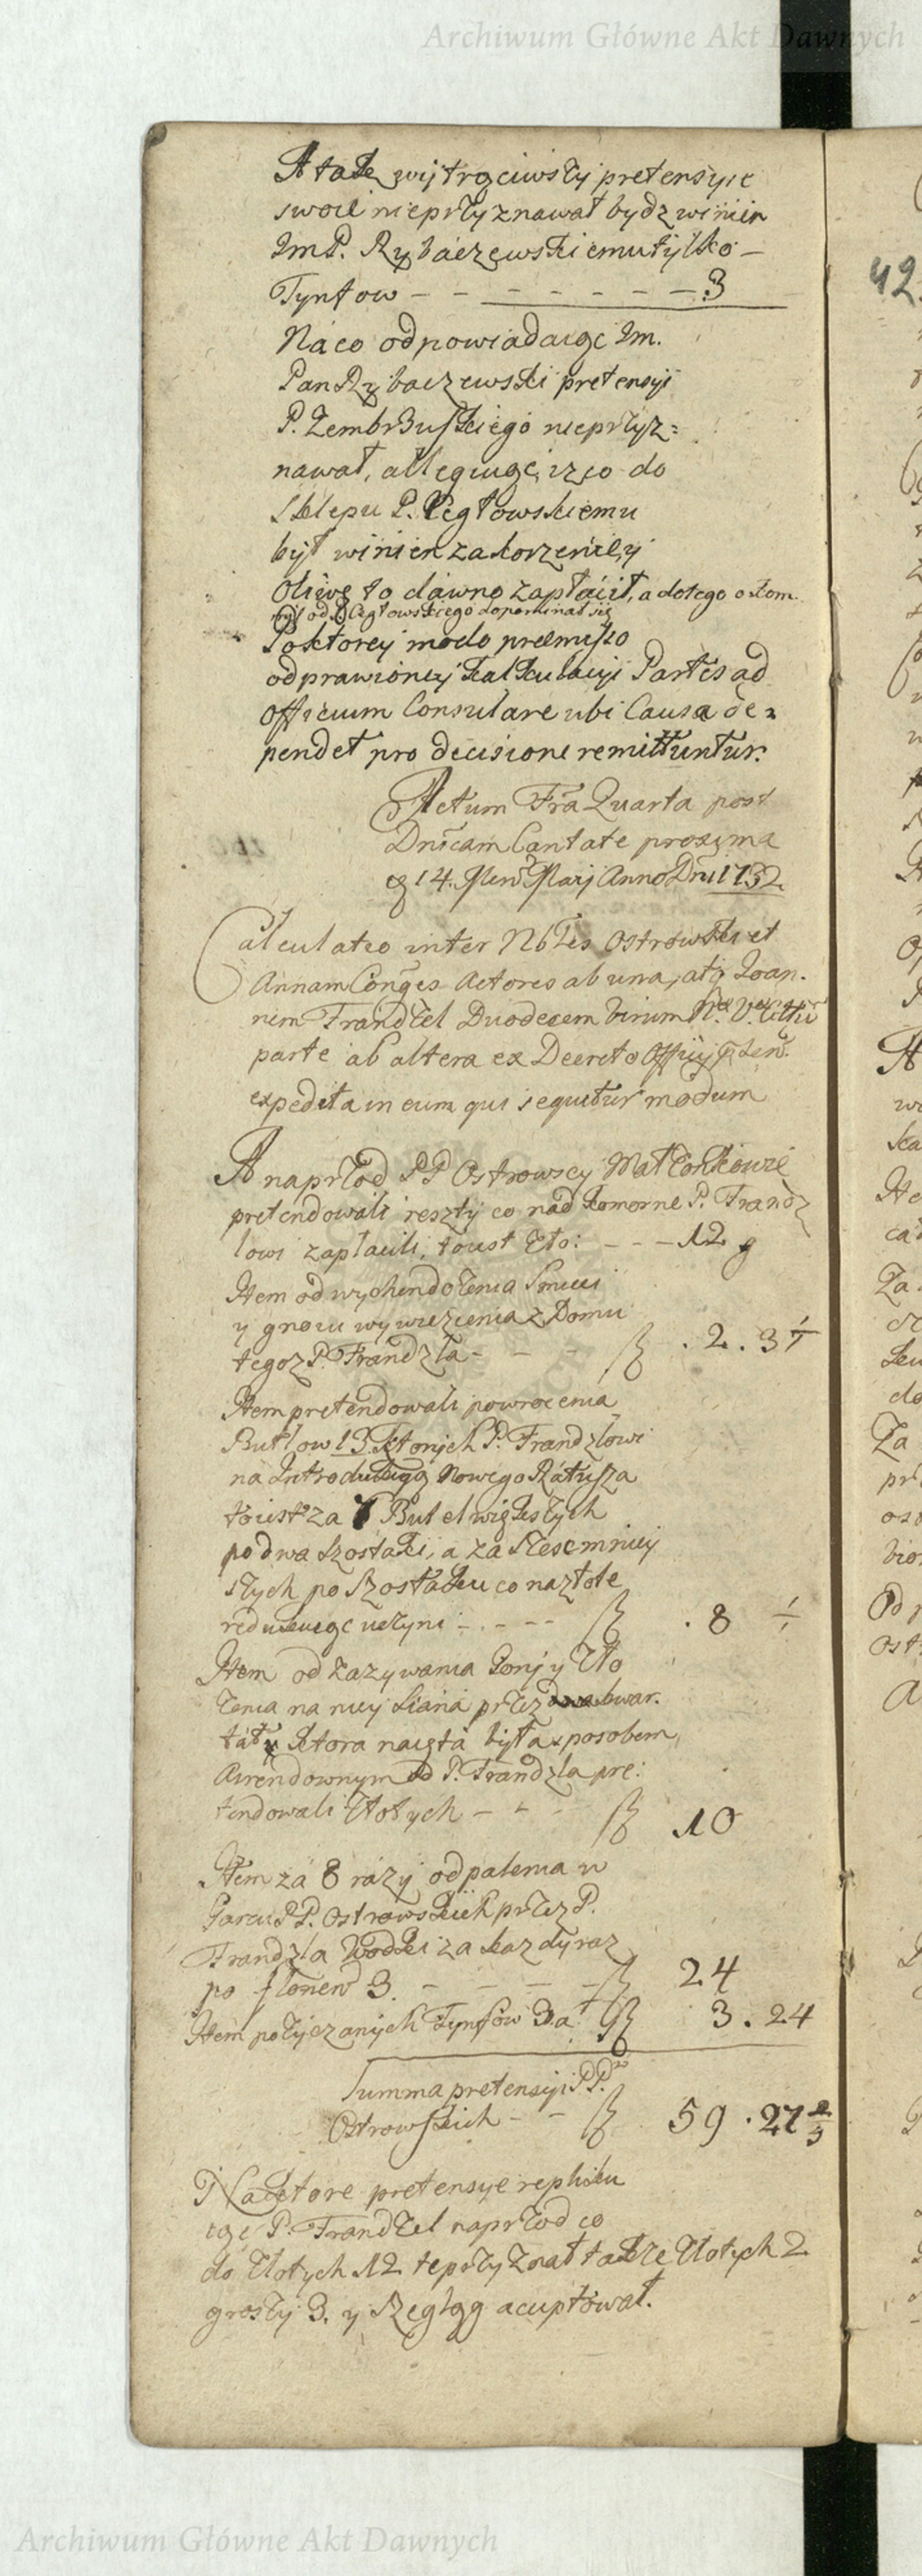 Archiwum Główne Akt Dawnych
A tak wytrąciwszy pretensyie
swoie nieprzyznawał bydz winien
ImP. Rybaczewskiemu tylko –
Tynfow – – – – – – – 3
Na co odpowiadaiąc Im.
Pan Rybaczewski pretensyi
P. Zembrzuskiego nieprzyz=
nawał, alleguiąc, iz co do
Sklepu P. Cegłowskiemu
był winien za korzenie, y
Oliwę to dawno zapłacił, a dotego
od P. Cegłowskiego dopominał się
Po ktorey modo praemisso
odprawioney kalkulacyi Partes ad
Officium Consulare ubi Causa de=
pendet pro decisione remittuntur.
Actum Fra Quarta post
Dnicam Cantate proxima
14. Mens Maij Anno Dni 1732
Calculatio inter Nbles Ostrowski et
Annam Conges Actores ab una, atq Joan.
nem Frandzel Duodecem virum
parte ab altera ex Decreto Officij
expedita in eum qui sequitur modum
A naprzod PP Ostrowscy Małzonkowie
pretendowali reszty co nad komorne P. Frandz
lowi zapłacili, to iest Zło: – – – 12
Item od wychendozenia Smieci
y gnoiu wywiezienia z Domu
tegoz P. Frandzla – – – . 2 . 3
Item pretendowali powrocenia
Butlow 13 ktorych P. Frandzlowi
na Introdukcyą Nowego Ratusza
to iest za 7 Butel większych
po dwa szostaki, a za szesc mniey
szych po szostaku co na złote
redukuiąc uczyni – . – – . 8
Item od zazywania Łonj y Zło
zenia na niey Siana przez kwar.
tał ktora naięta była sposobem
Arrendownym od P. Frandzla pre:
tendowali Złotych – – 10
Item za 8 razy odpalenia w
Garcu PP. Ostrowskich przez P.
Frandzla Wodki za kazdy raz
po florenow 3. – – – – 24
Item pozyczanych Tynfow 3 a 3 . 24
Summa pretensyi PP.
Ostrowskich – – 59 . 27 2/3
Na ktore pretensye repliku
iąc P. Frandzel naprzod co
do Złotych 12 te przyznał takze Złotych 2
groszy 3. y Szeląg acceptował.
42.
Archiwum Główne Akt Dawnych